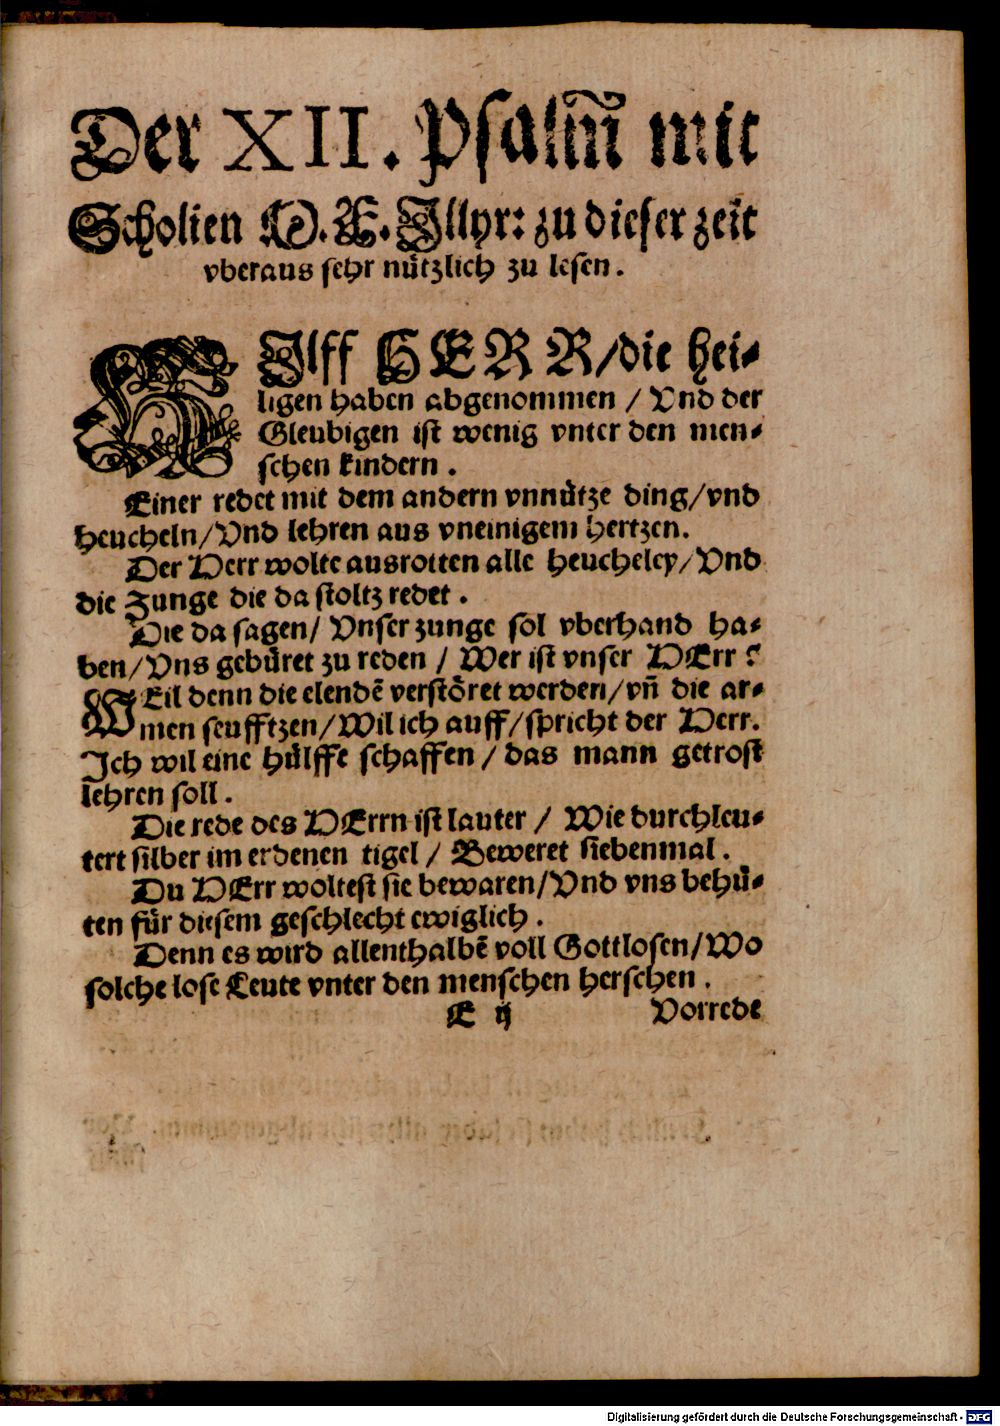 Der XII. Psalm̃ mit
Scholien M. F. Jllyr: zu dieser zeit
vberaus sehr nützlich zu lesen.
HJlff HERR/die hei-
ligen haben abgenommen / Vnd der
Gleubigen ist wenig vnter den men-
schen kindern.
Einer redet mit dem andern vnnütze ding/vnd
heucheln/Vnd lehren aus vneinigem hertzen.
Der Herr wolte ausrotten alle heucheley/Vnd
die Zunge die da stoltz redet.
Die da sagen/ Vnser zunge sol vberhand ha-
ben/Vns gebüret zu reden / Wer ist vnser HErr?
WEil denn die elendẽ verstöret werden/vñ die ar-
men seufftzen/Wil ich auff/spricht der Herr.
Jch wil eine hülffe schaffen / das mann getrost
lehren soll.
Die rede des HErrn ist lauter / Wie durchleu-
tert silber im erdenen tigel / Beweret siebenmal.
Du HErr woltest sie bewaren/Vnd vns behü-
ten für diesem geschlecht ewiglich.
Denn es wird allenthalbẽ voll Gottlosen/Wo
solche lose Leute vnter den menschen herschen.
E ij Vorrede
Digitalisierung gefördert durch die Deutsche Forschungsgemeinschaft - DFG